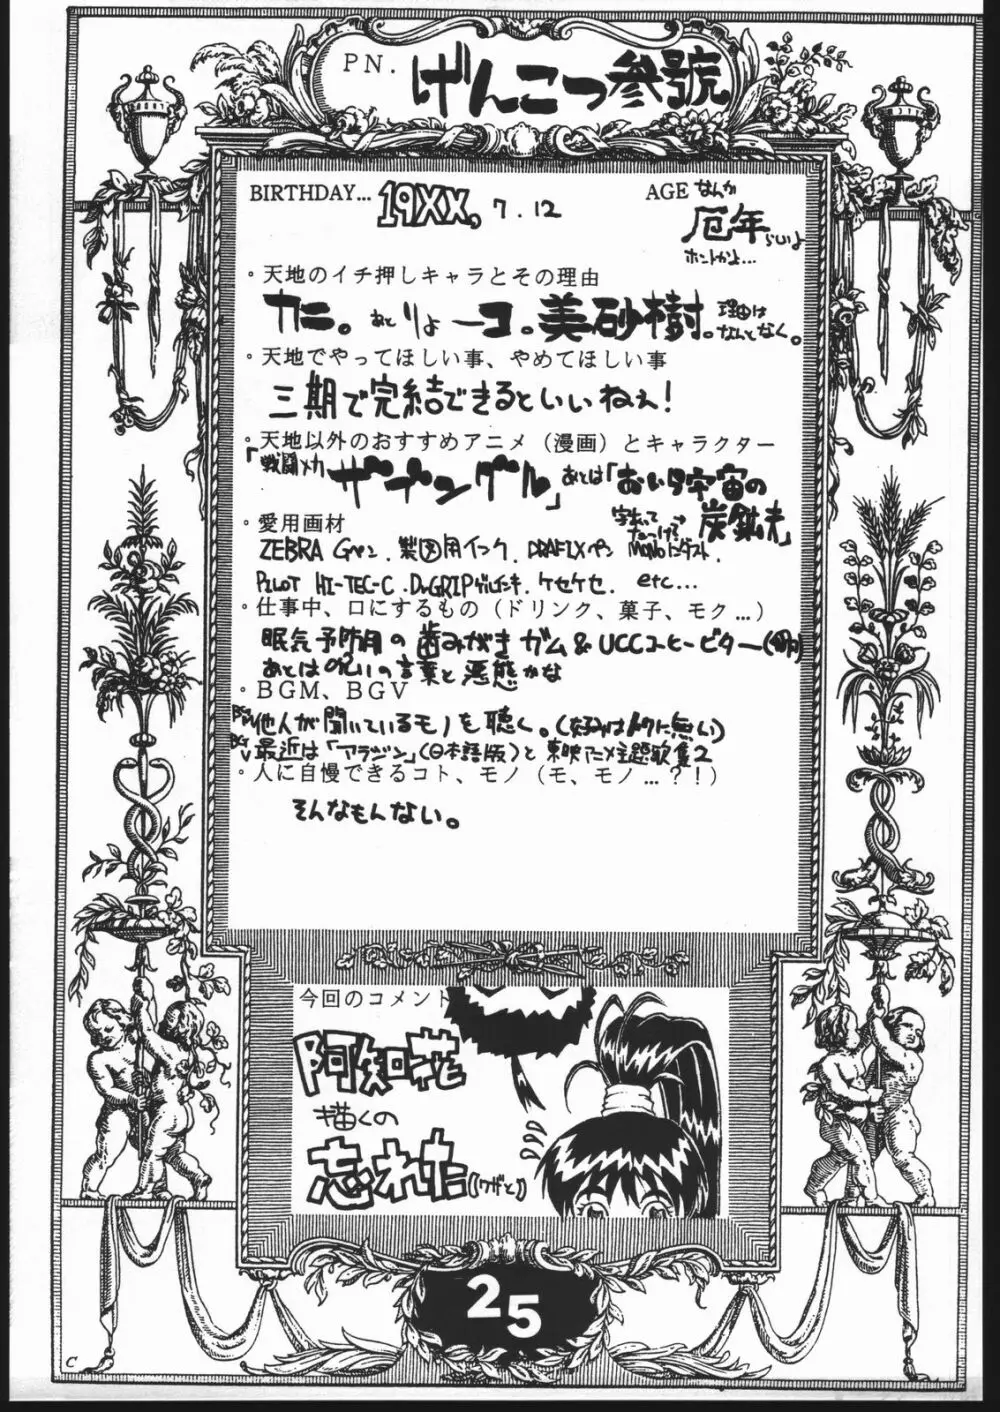 PN. げんこつ参號
BIRTHDAY... 19XX, 7.12
AGE なんか
厄年らしいよ
ホントかよ…
・天地のイチ押しキャラとその理由
カニ。あとりょーコ。美砂樹。理由は
なんとなく。
・天地でやってほしい事、やめてほしい事
三期で完結できるといいねぇ!
・天地以外のおすすめアニメ（漫画）とキャラクター
「戦闘メカ ザブングル」あとは「おいら宇宙の
炭鉱夫」
・愛用画材
ZEBRA Gペン. 製図用インク. DRAFIXペン MONO
PILOT HI-TEC-C. Dr.GRIPゲルインキ. ケセケセ. etc...
・仕事中、口にするもの（ドリンク、菓子、モク…）
眠気予防用の歯みがきガム&UCCコーヒービター
あとは呪いの言葉と悪態かな
・BGM、BGV
BGM/他人が聞いているモノを聴く。(好みは特に無い)
BGV 最近は「アラジン」(日本語版)と東映アニメ主題歌集2
・人に自慢できるコト、モノ（モ、モノ…?!）
そんなもんない。
今回のコメント
阿知花
描くの
忘れた((ワザと))
25
C